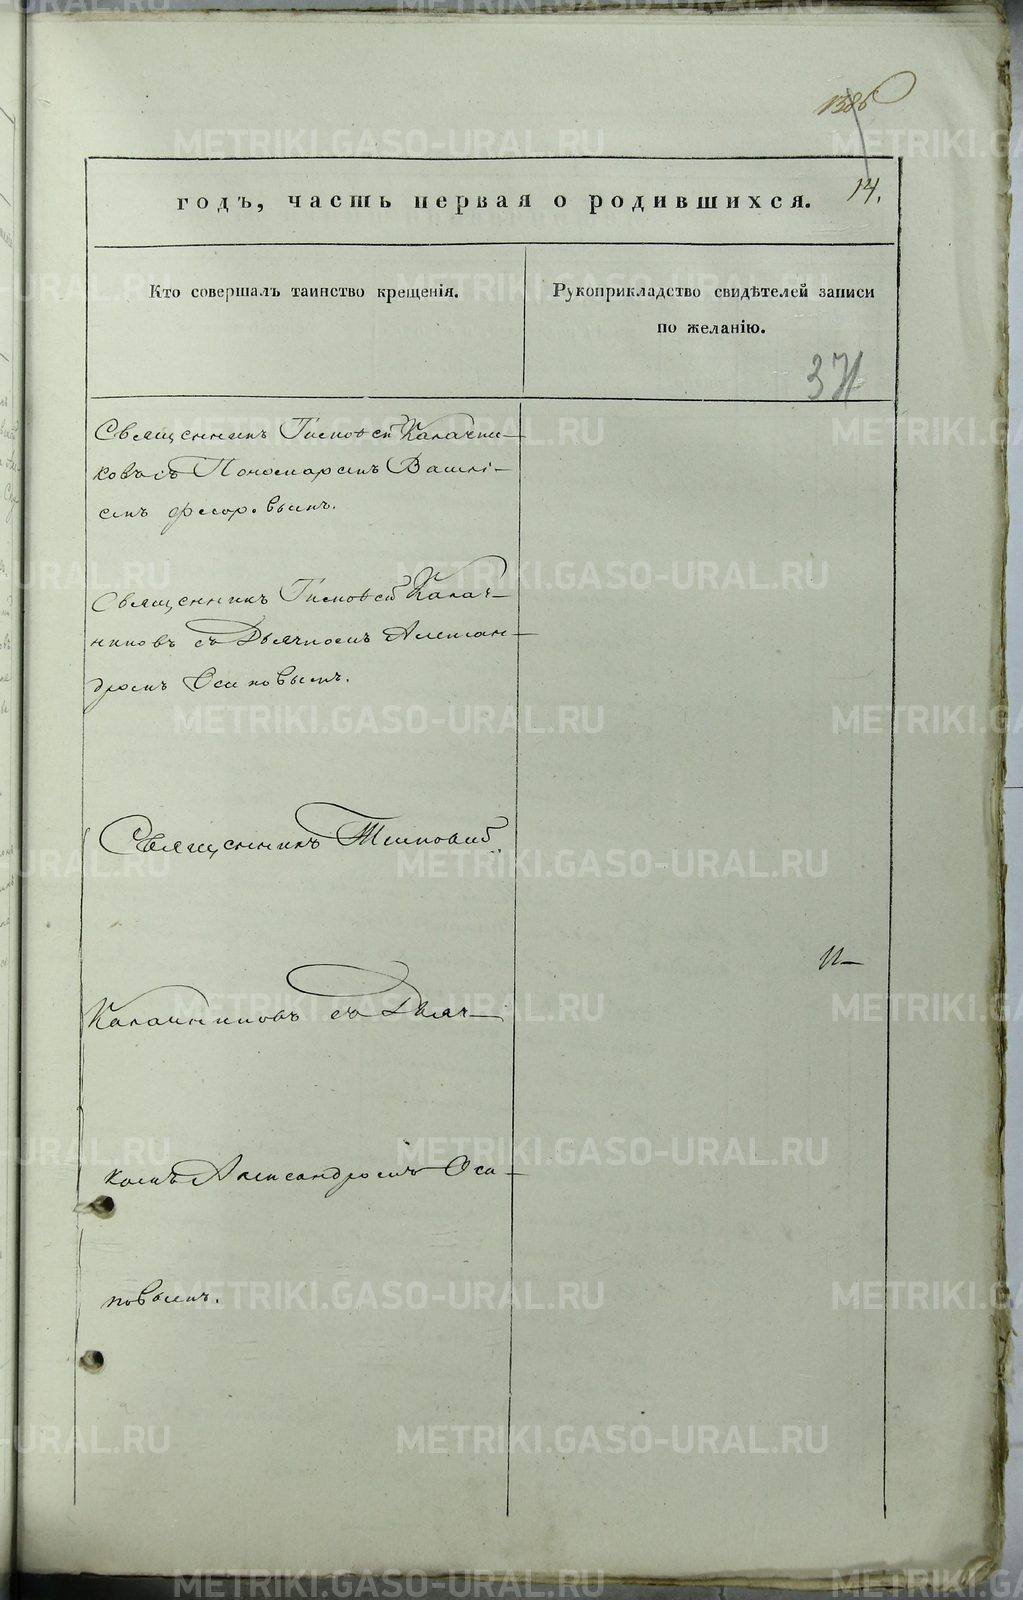 14.
годъ, часть первая о родившихся.
Кто совершалъ таинство крещенія.
Рукоприкладство свидѣтелей записи
по желанію.
Священникъ Тимофей Калачни-
ковъ съ Пономаремъ Васил-
емъ Федоровымъ.
Священникъ Тимофей Калач-
никовъ съ Дьячкомъ Алексан-
дромъ Осиповымъ.
Священникъ Тимофей
Калачниковъ съ Дьяч-
комъ Александромъ Оси-
повымъ.
METRIKI.GASO-URAL.RU